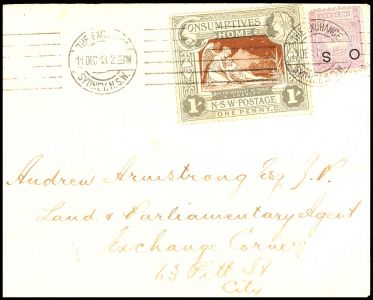 THE EXCHANGE
11 DEC
2
SYDNEY. N.S.W.
CONSUMPTIVES
HOME
1/-
1/-
N·S·W·POSTAGE
ONE PENNY
THE EXCHANGE
DE
S O
Andrew Armstrong Esq J.P.
Land & Parliamentary Agent
Exchange Corner
63 Pitt St
City